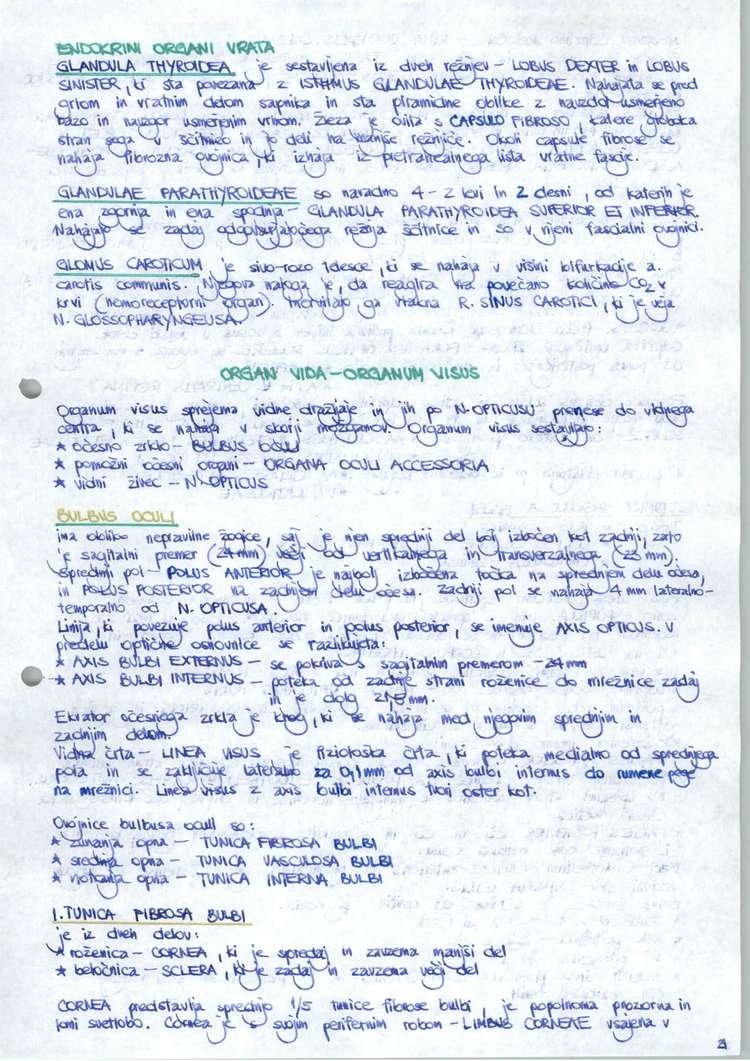 ENDOKRINI ORGANI VRATA
GLANDULA THYROIDEA je sestavljena iz dveh režnjev - LOBUS DEXTER in LOBUS
SINISTER, ki sta povezana z ISTHMUS GLANDULAE THYROIDEAE. Nahajata se pred
grlom in vratnim delom sapnika in sta piramidne oblike z navzdol usmerjeno
bazo in navzgor usmerjenim vrhom. Žleza je ovita s CAPSULO FIBROSO, katere globoka
stran sega v ščitnico in jo deli na manjše režnjiče. Okoli capsule fibrose se
nahaja fibrozna ovojnica, ki izhaja iz pretrahealnega lista vratne fascije.
GLANDULAE PARATHYROIDEAE so navadno 4 - 2 levi in 2 desni, od katerih je
ena zgornja in ena spodnja - GLANDULA PARATHYROIDEA SUPERIOR ET INFERIOR.
Nahajajo se zadaj odgovarjajočega režnja ščitnice in so v njeni fascialni ovojnici.
GLOMUS CAROTICUM je sivo-rozo telesce, ki se nahaja v višini bifurkacije a.
carotis communis. Njegova naloga je, da reagira na povečano količino CO2 v
krvi (hemoreceptorni organ). Inervirajo ga vlakna R. SINUS CAROTICI, ki je veja
N. GLOSSOPHARYNGEUSA.
ORGAN VIDA - ORGANUM VISUS
Organum visus sprejema vidne dražljaje in jih po N. OPTICUSU prenese do vidnega
centra, ki se nahaja v skorji možganov. Organum visus sestavljajo:
* očesno zrklo - BULBUS OCULI
* pomožni očesni organi - ORGANA OCULI ACCESSORIA
* vidni živec - N. OPTICUS
BULBUS OCULI
ima obliko nepravilne žogice, saj je njen sprednji del bolj izbočen kot zadnji, zato
je sagitalni premer (24 mm) večji od vertikalnega in transverzalnega (23 mm).
Sprednji pol - POLUS ANTERIOR je najbolj izbočena točka na sprednjem delu očesa,
in POLUS POSTERIOR na zadnjem delu očesa. Zadnji pol se nahaja 4 mm lateralno-
temporalno od N. OPTICUSA.
Linija, ki povezuje polus anterior in polus posterior, se imenuje AXIS OPTICUS. V
predelu optične osnovnice se razlikujeta:
* AXIS BULBI EXTERNUS - se pokriva s sagitalnim premerom - 24 mm
* AXIS BULBI INTERNUS - poteka od zadnje strani roženice do mrežnice zadaj
in je dolg 21,8 mm.
Ekvator očesnega zrkla je krog, ki se nahaja med njegovim sprednjim in
zadnjim delom.
Vidna črta - LINEA VISUS je fiziološka črta, ki poteka medialno od sprednjega
pola in se zaključuje lateralno za 0,1 mm od axis bulbi internus do rumene pege
na mrežnici. Linea visus z axis bulbi internus tvori oster kot.
Ovojnice bulbusa oculi so:
* zunanja opna - TUNICA FIBROSA BULBI
* srednja opna - TUNICA VASCULOSA BULBI
* notranja opna - TUNICA INTERNA BULBI
1. TUNICA FIBROSA BULBI
je iz dveh delov:
* roženica - CORNEA, ki je spredaj in zavzema manjši del
* beločnica - SCLERA, ki je zadaj in zavzema večji del
CORNEA predstavlja sprednjo 1/5 tunice fibrose bulbi, je popolnoma prozorna in
lomi svetlobo. Cornea je s svojim perifernim robom - LIMBUS CORNEAE vsajena v